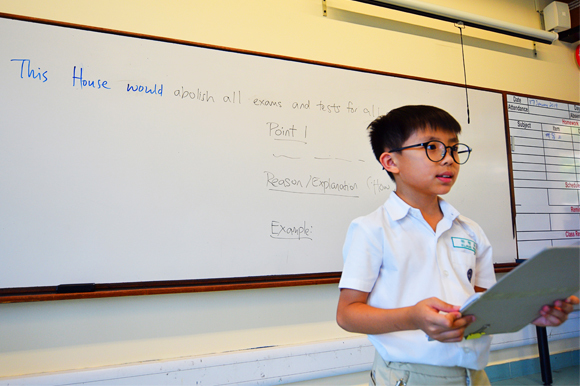 This House would abolish all exams and tests for all
Point 1
Reason/Explanation (How
Example:
Date
Attendance
Subject
Homework
Item
Class Re